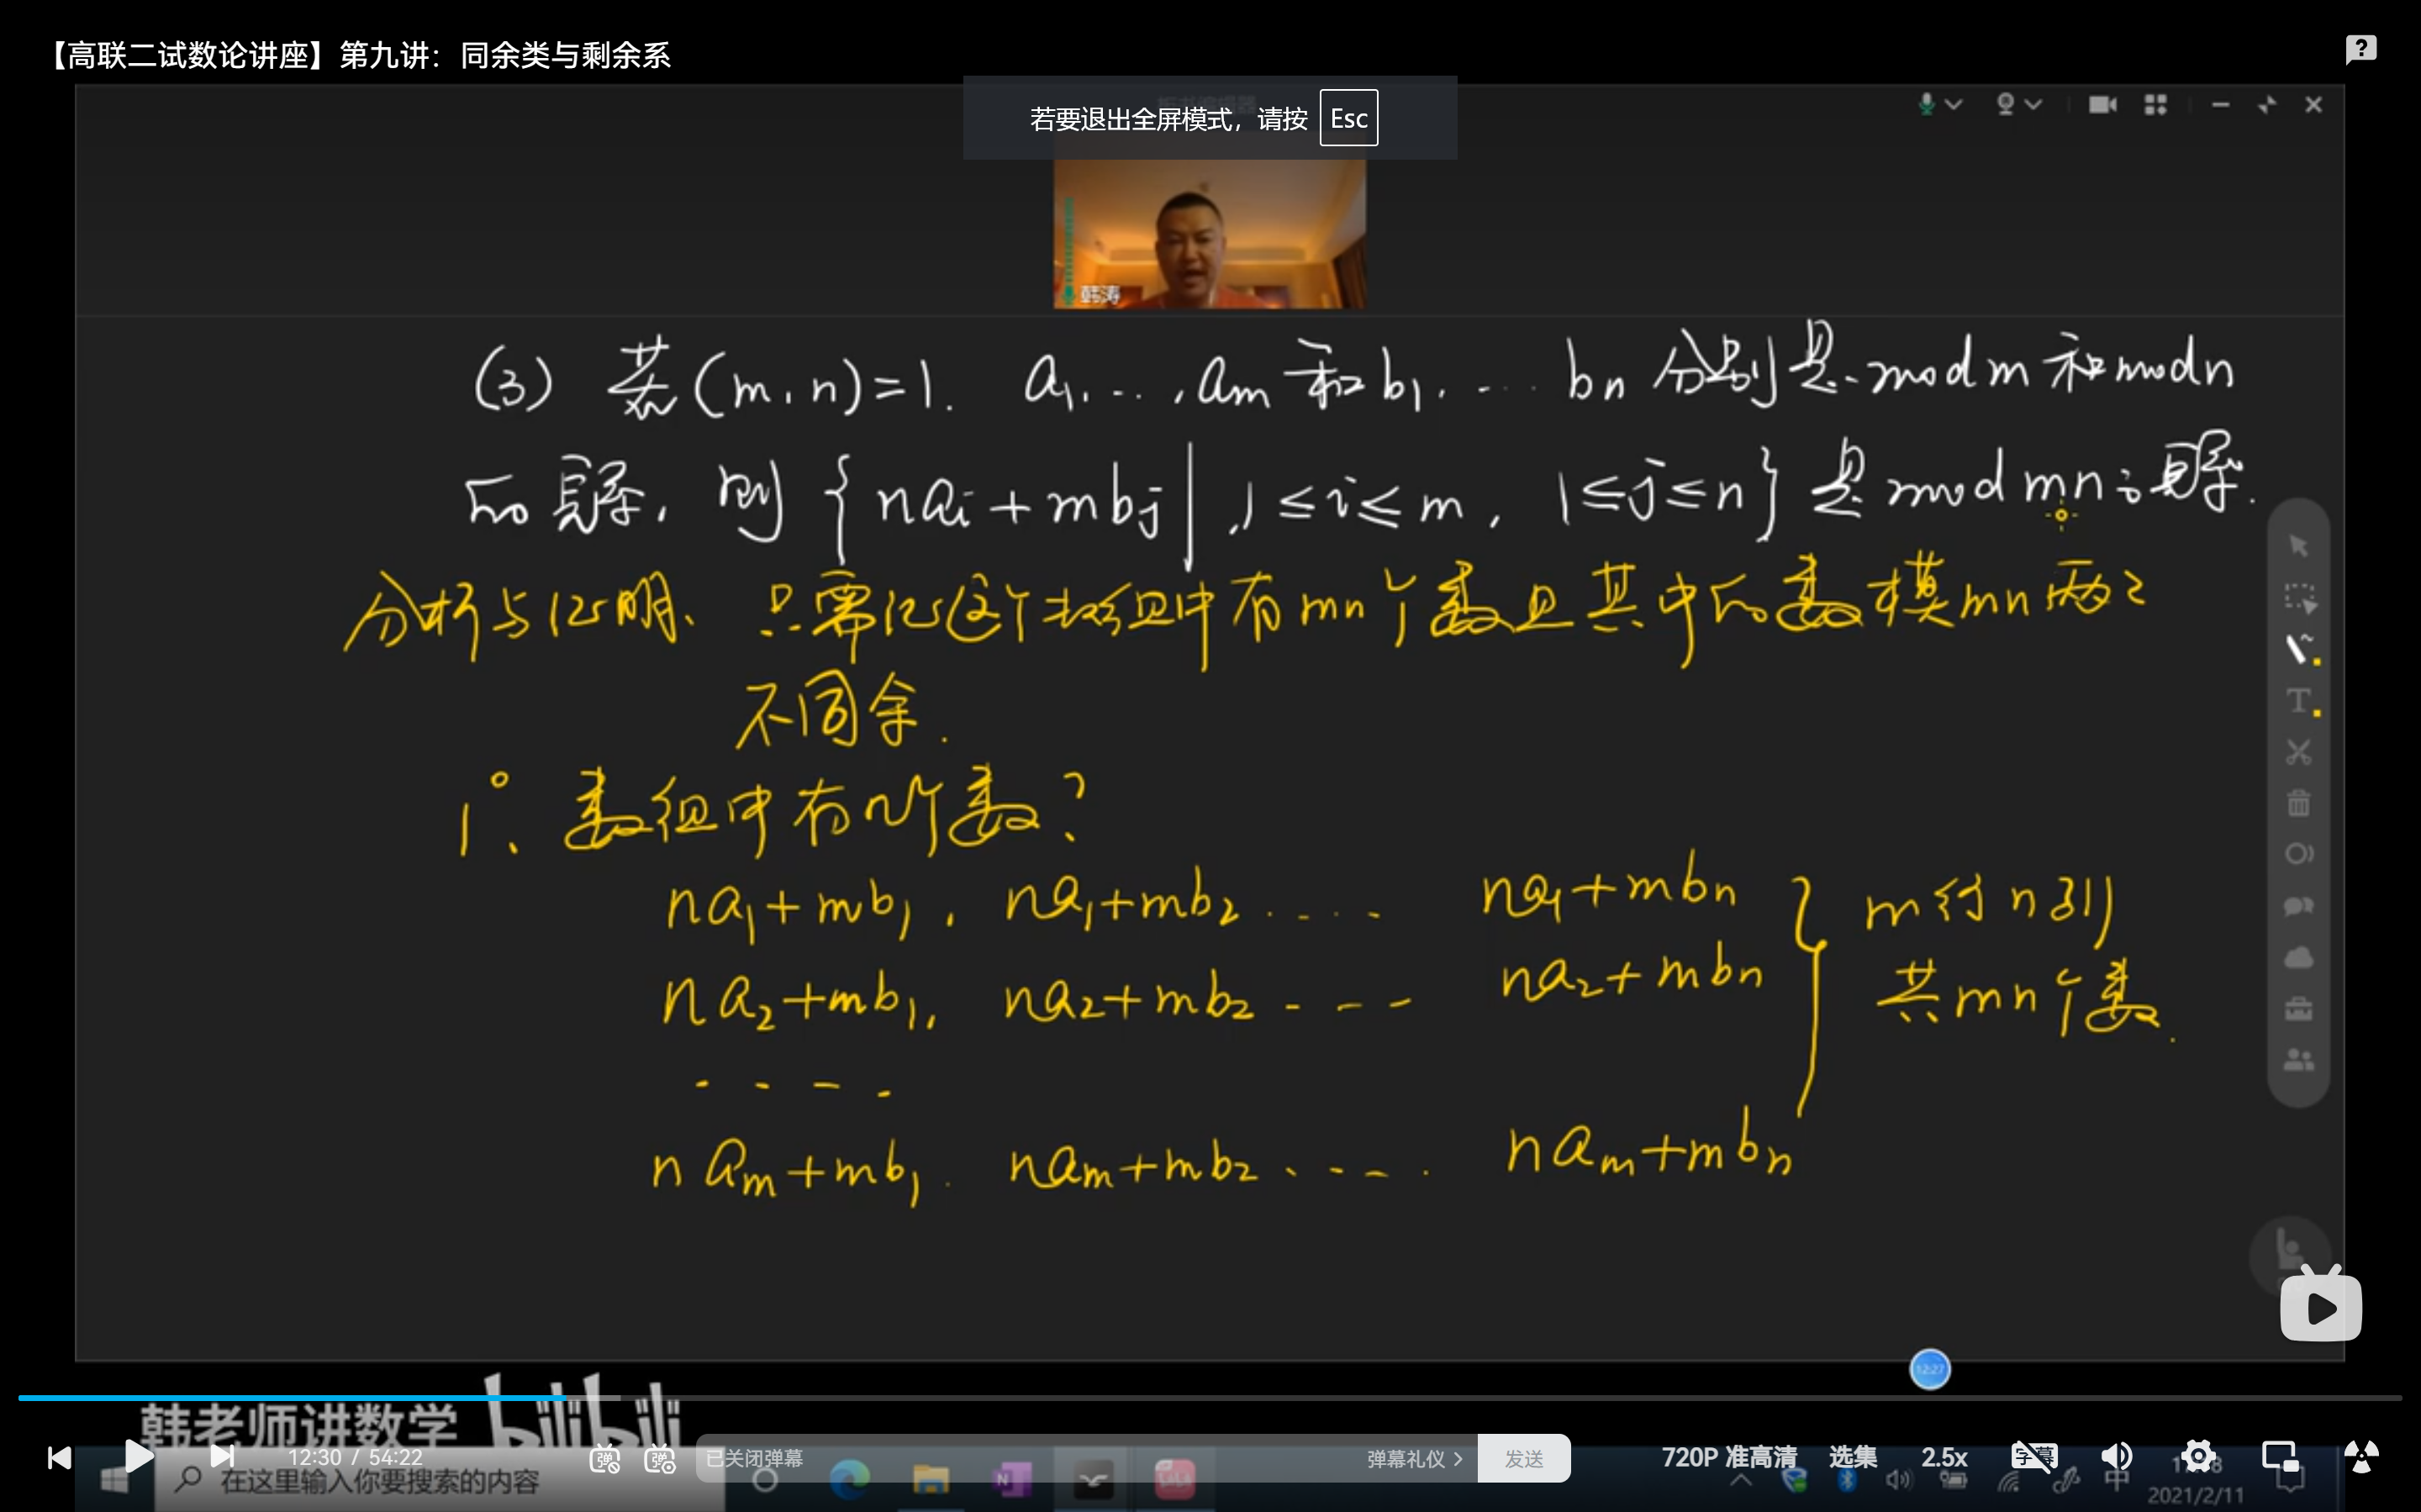 【高联二试数论讲座】第九讲：同余类与剩余系
若要退出全屏模式，请按 Esc
韩涛
(3) 若(m,n)=1. a1,...,am 和 b1,...bn 分别是 mod m 和 mod n
的完系, 则 { nai + mbj | ,1≤i≤m, 1≤j≤n} 是 mod mn 的完系.
分析与证明、只需证这个数组中有mn个数且其中的数模mn两两
不同余.
1°、数组中有几个数?
na1+mb1, na1+mb2 .... na1+mbn } m行n列
na2+mb1, na2+mb2 ---- na2+mbn 共mn个数.
....
nam+mb1. nam+mb2 .... nam+mbn
12:27
韩老师讲数学 bilibili
12:30 / 54:22
弹 弹
已关闭弹幕
弹幕礼仪 >
发送
720P 准高清
选集
2.5x
字幕
在这里输入你要搜索的内容
中
2021/2/11